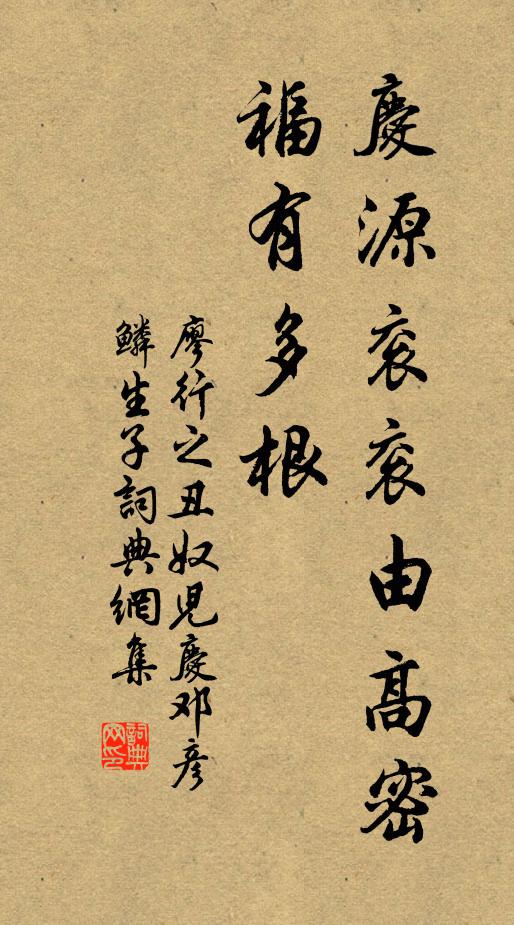 慶源衮衮由高密
福有多根
廖行之丑奴児慶邓彦
鱗生子詞典網集
詞典网印